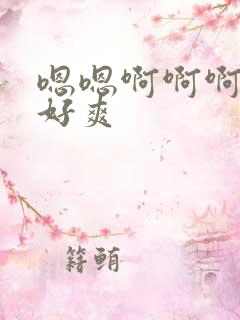 嗯嗯啊啊啊
好爽
籍鲔